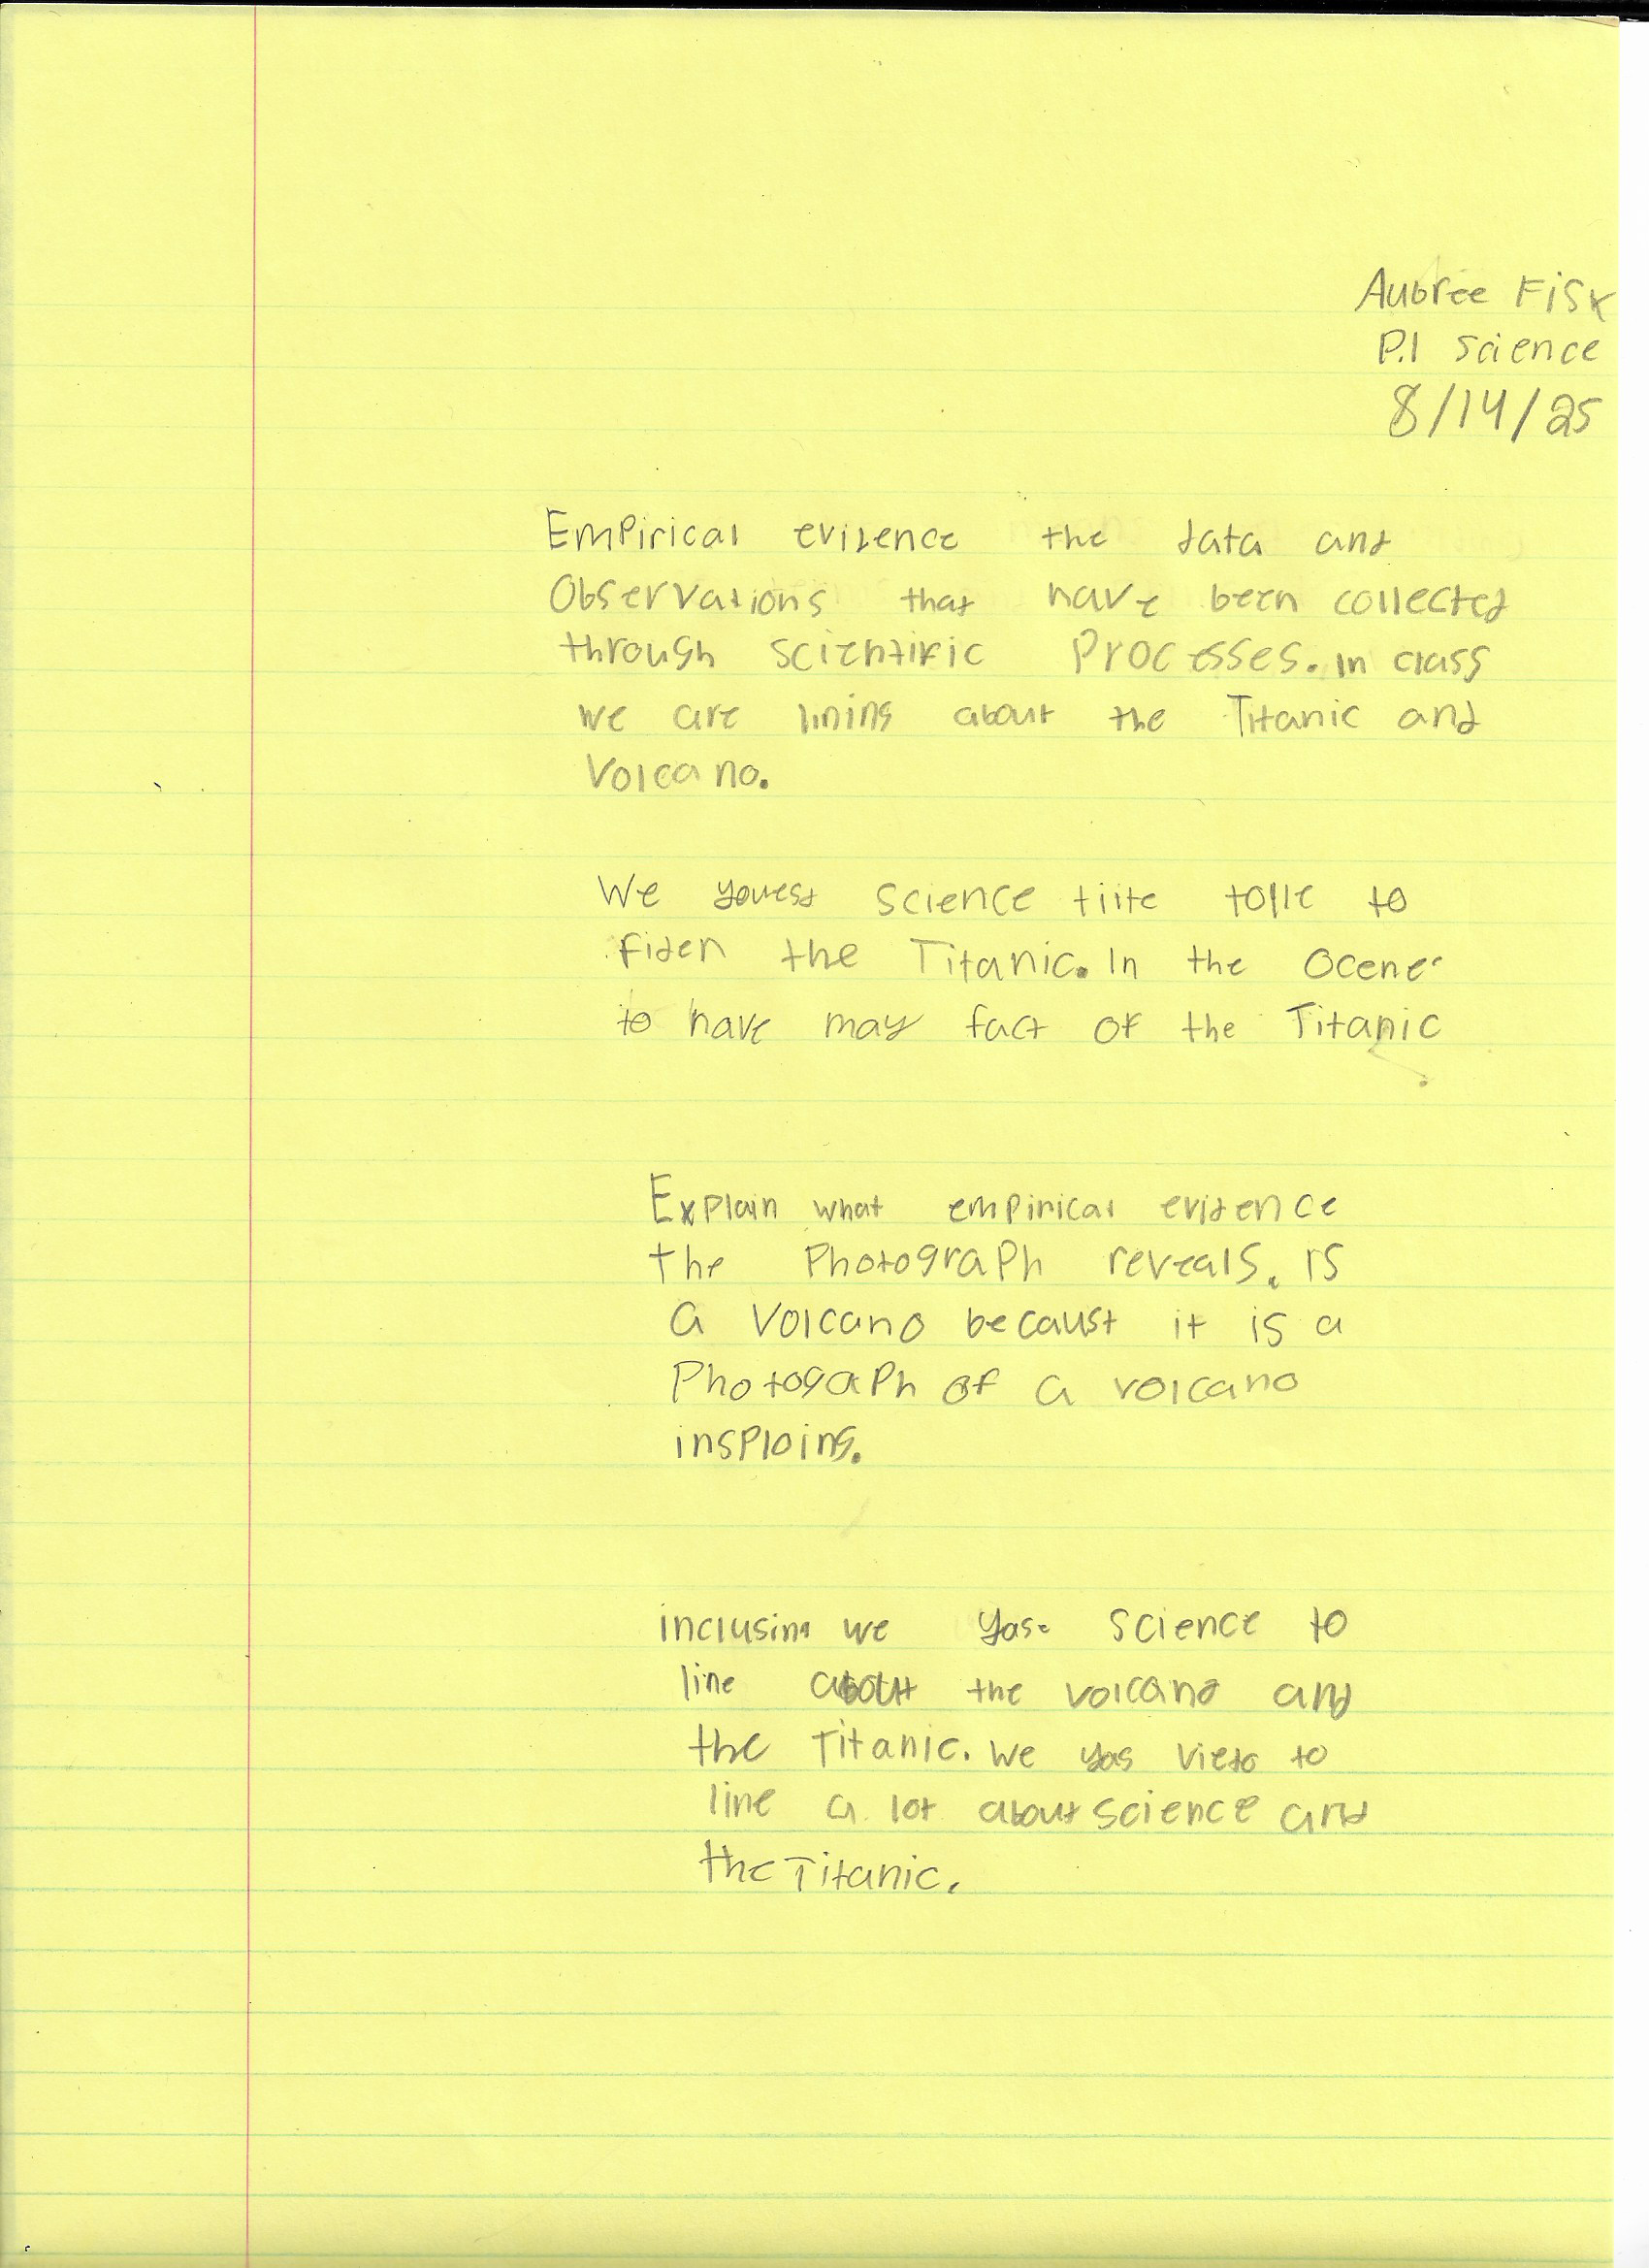 Aubree Fisk
P.1 Science
8/14/25
Empirical evidence the data and
Observations that have been collected
through scientific Processes. in class
we are lining about the Titanic and
Volcano.
We youesd science tiite tolle to
fiden the Titanic. In the Ocene
to have may fact of the Titanic
.
Explain what empirical evidence
the Photograph reveals. is
a Volcano becaust it is a
Photogaph of a volcano
insploing.
inclusing we yase Science to
line about the volcano and
the Titanic. we yas vieto to
line a lot about science and
the Titanic.